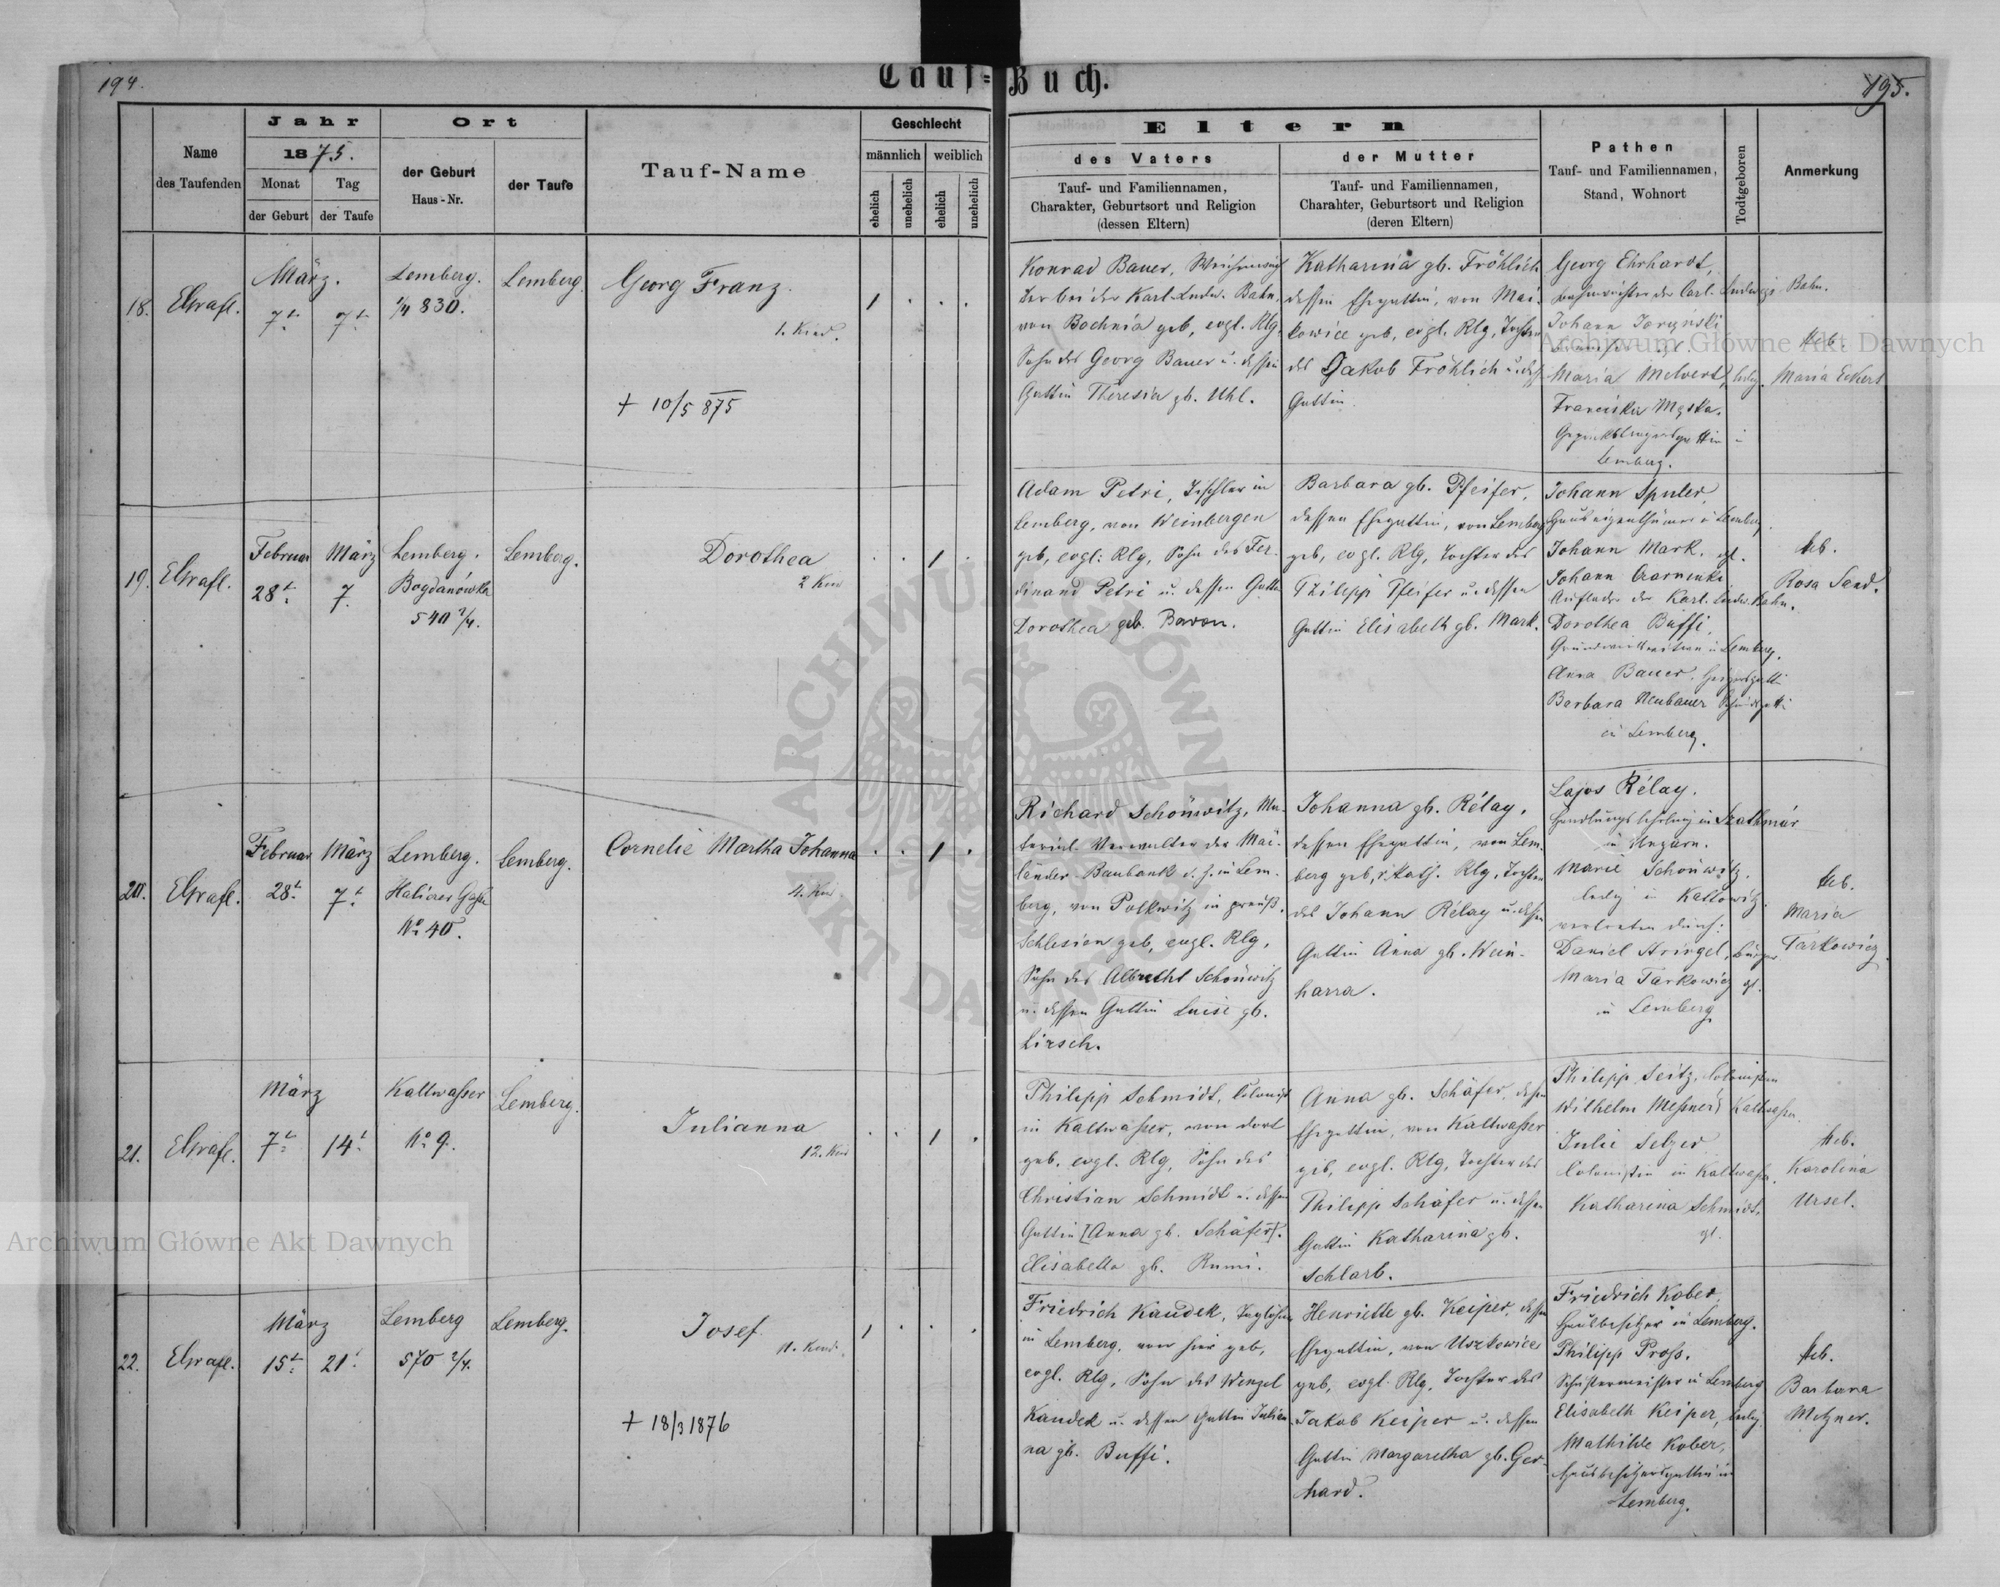 194.
Tauf-Buch.
195.
Name
des Taufenden
Jahr
1875.
Monat
Tag
der Geburt
der Taufe
Ort
der Geburt
Haus-Nr.
der Taufe
Tauf-Name
Geschlecht
männlich
weiblich
ehelich
unehelich
ehelich
unehelich
Eltern
des Vaters
Tauf- und Familiennamen,
Charakter, Geburtsort und Religion
(dessen Eltern)
der Mutter
Tauf- und Familiennamen,
Charakter, Geburtsort und Religion
(deren Eltern)
Pathen
Tauf- und Familiennamen,
Stand, Wohnort
Todtgeboren
Anmerkung
18.
März.
7t.
7t.
Lemberg.
830.
Lemberg.
Georg Franz.
1. Kind.
+ 10/5 875
1
Konrad Bauer,
ter bei der Karl-Ludw. Bahn,
von Bochnia geb, evgl. Rlg,
Sohn des Georg Bauer u. dessen
Gattin Theresia gb. Uhl.
Katharina gb. Fröhlich
dessen Ehegattin, von Mai-
kowice geb, evgl. Rlg, Tochter
des Jakob Fröhlich u. dess.
Gattin
Georg Ehrhardt,
der Carl. Ludwigs Bahn.
Johann
Maria
Franciska Myska.
Lemberg.
Heb.
Maria Eckert
19.
Februar
28t.
März
7.
Lemberg.
Bogdanówka
540 2/4.
Lemberg.
Dorothea
2 Kin
1
Adam Petri, Tischler in
Lemberg, von Weinbergen
geb, evgl. Rlg, Sohn des Fer-
dinand Petri u. dessen Gattin
Dorothea geb. Bavon.
Barbara gb. Pfeifer,
dessen Ehegattin, von Lemberg
geb, evgl. Rlg, Tochter des
Philipp Pfeifer u. dessen
Gattin Elisabeth gb. Mark.
Johann Spuler,
Hauseigenthümer in Lemberg.
Johann Mark.
Johann Czarnecki
Auflader der Karl. Ludw. Bahn.
Dorothea Buffi,
in Lemberg.
Anna Bauer,
Barbara Neubauer
in Lemberg.
Heb.
Rosa Sand.
20.
Februar
28t.
März
7t.
Lemberg.
Halicer Gasse
No 40.
Lemberg.
Cornelie Martha Johanna
4. Kin
1
Richard Schönwitz, Ma-
terial Verwalter der Mai-
länder Baubank d. z. in Lem-
berg, von Polkwitz in preuß.
Schlesien geb, evgl. Rlg,
Sohn des Albrecht Schönwitz
u. dessen Gattin Luise gb.
Lirsch.
Johanna gb. Rélay,
dessen Ehegattin, von Lem-
berg geb, r. kath. Rlg, Tochter
des Johann Rélay u. dessen
Gattin Anna gb. Wein-
harra.
Lajos Rélay,
Handlungslehrling in Szathmár
in Ungarn.
Marie Schönwitz,
ledig in Kattowitz.
vertreten durch:
Daniel Stringel, Bürger
Maria Tarkowicz
in Lemberg
Heb.
Maria
Tarkowicz
21.
März
7t.
14t.
Kaltwasser
No 9.
Lemberg.
Julianna
12. Kin
1
Philipp Schmidt, Colonist
in Kaltwasser, von dort
geb. evgl. Rlg, Sohn des
Christian Schmidt u. dessen
Gattin [Anna gb. Schäfer].
Elisabetta gb. Rumi.
Anna gb. Schäfer, dessen
Ehegattin, von Kaltwasser
geb, evgl. Rlg, Tochter des
Philipp Schäfer u. dessen
Gattin Katharina gb.
Schlarb.
Philipp Seitz, Colonisten
Wilhelm Meßner, Kaltwasser.
Julie Selzer
Colonistin in Kaltwasser.
Katharina Schmidt,
Heb.
Karolina
Ursel.
22.
März
15t.
21t.
Lemberg
570 2/4.
Lemberg.
Josef
11. Kind.
+ 18/3 1876
1
Friedrich Kaudek, Taglöhner
in Lemberg, von hier geb,
evgl. Rlg, Sohn des Wenzel
Kaudek u. dessen Gattin Julian-
na gb. Buffi.
Henriette gb. Keiper, dessen
Ehegattin, von Uszkowice
geb, evgl. Rlg, Tochter des
Jakob Keiper u. dessen
Gattin Margaretha gb. Ger-
hard.
Friedrich Kober,
Hausbesitzer in Lemberg.
Philipp Proß.
Schustermeister in Lemberg
Elisabeth Keiper, ledig
Mathilde Kober,
Hausbesitzersgattin in
Lemberg.
Heb.
Barbara
Metzner.
Archiwum Główne Akt Dawnych
Archiwum Główne Akt Dawnych
ARCHIWUM GŁÓWNE AKT DAWNYCH